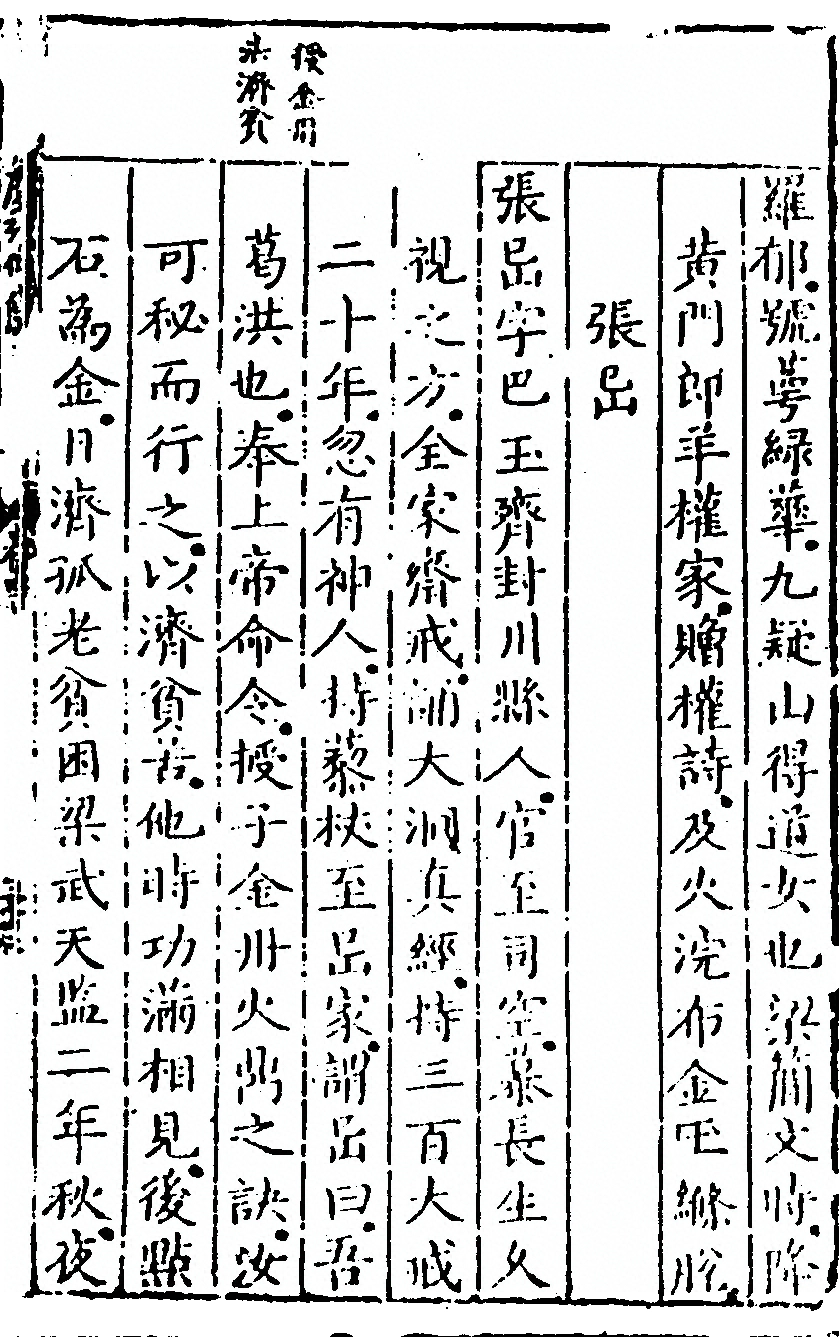 授金丹
法濟貧
羅郁號萼緑華九疑山得道女也梁簡文時降
黄門郎羊權家贈權詩及火浣布金玉條脫
張岊
張岊字巴玉齊封川縣人官至司空慕長生久
視之方全家齋戒誦大洞真經持三百大戒
二十年忽有神人持藜杖至岊家謂岊曰吾
葛洪也奉上帝命令授子金丹火鼎之訣汝
可秘而行之以濟貧苦他時功滿相見後點
石為金日濟孤老貧困梁武天監二年秋夜